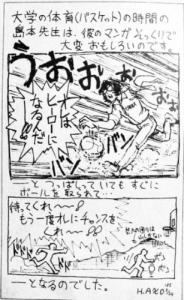 大学の体育(バスケット)の時間の
島本先生は、彼のマンガそっくりで
大変おもしろいのです。
うおおぉぉ
オレは
ヒーローに
なるんだ!!
バン
バン
バン
―とつっぱしっていてもすぐに
ボールを取られて
待ってくれ〜!!
もう一度オレにチャンスを
くれ〜!!
―となるのでした。